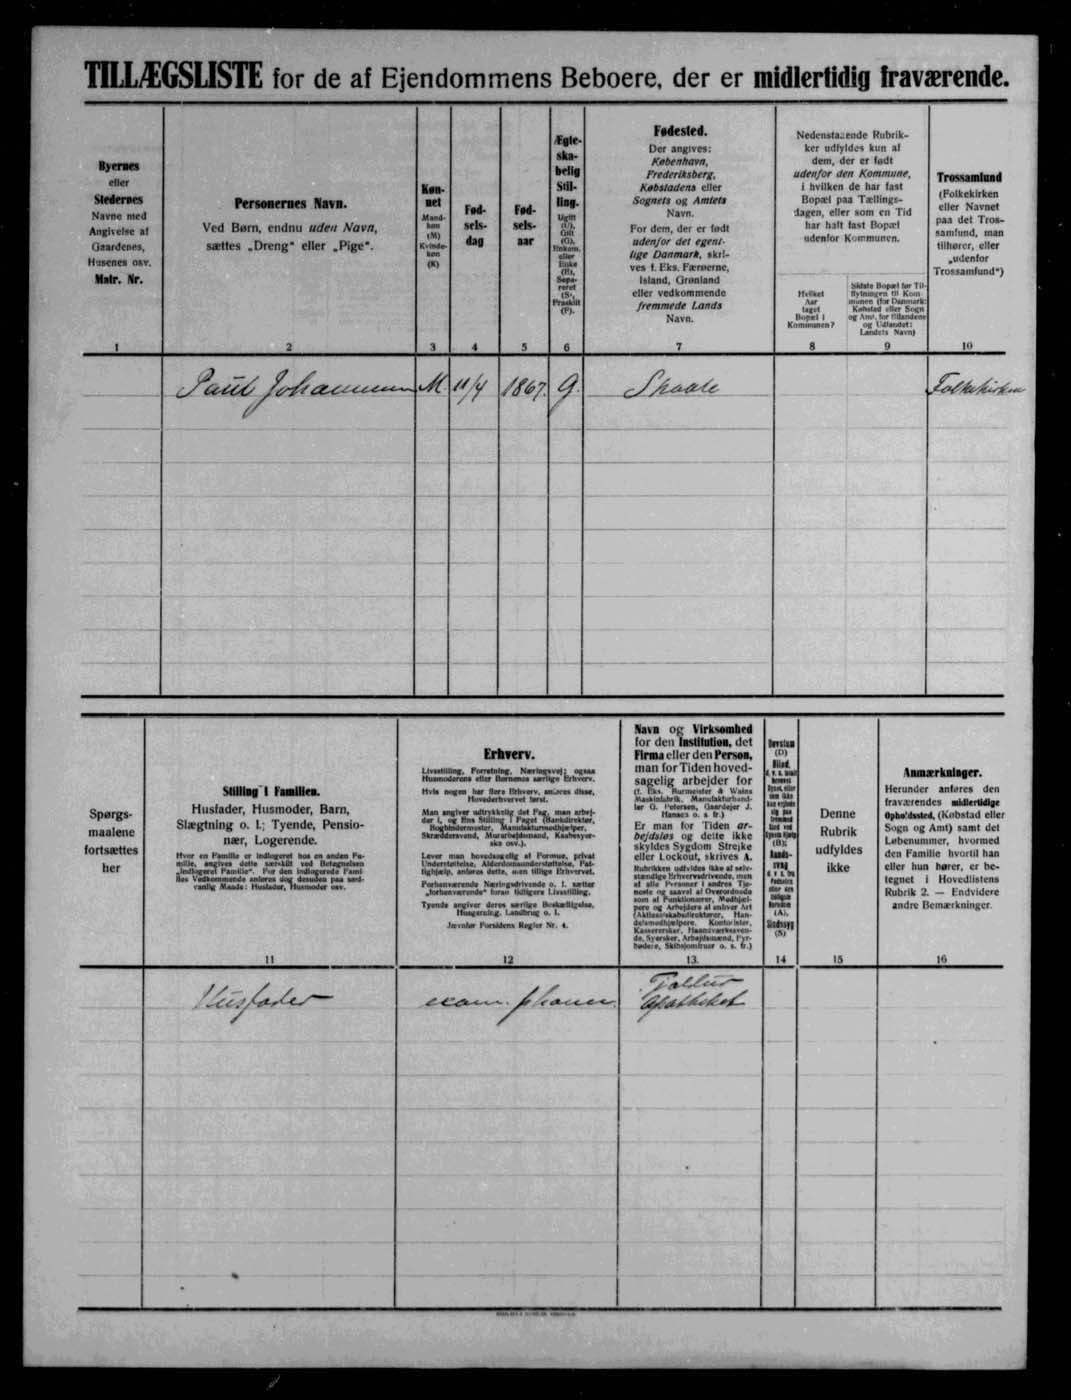 TILLÆGSLISTE for de af Ejendommens Beboere, der er midlertidig fraværende.
Byernes
eller
Stedernes
Navne med
Angivelse af
Gaardenes,
Husenes osv.
Matr. Nr.
1
Personernes Navn.
Ved Børn, endnu uden Navn,
sættes „Dreng“ eller „Pige“.
2
Køn-
net
Mand-
køn
(M)
Kvinde-
køn
(K)
3
Fød-
sels-
dag
4
Fød-
sels-
aar
5
Ægte-
ska-
belig
Stil-
ling.
Ugift
(U),
Gift
(G),
Enkem.
eller
Enke
(E),
Sepa-
reret
(S),
Fraskilt
(F).
6
Fødested.
Der angives:
København,
Frederiksberg,
Købstadens eller
Sognets og Amtets
Navn.
For dem, der er født
udenfor det egent-
lige Danmark, skri-
ves f. Eks. Færøerne,
Island, Grønland
eller vedkommende
fremmede Lands
Navn.
7
Nedenstaaende Rubrik-
ker udfyldes kun af
dem, der er født
udenfor den Kommune,
i hvilken de har fast
Bopæl paa Tællings-
dagen, eller som en Tid
har haft fast Bopæl
udenfor Kommunen.
Hvilket
Aar
taget
Bopæl i
Kommunen?
8
Sidste Bopæl før Til-
flytningen til Kom-
munen (for Danmark:
Købstad eller Sogn
og Amt, for Bilandene
og Udlandet:
Landets Navn)
9
Trossamfund
(Folkekirken
eller Navnet
paa det Tros-
samfund, man
tilhører, eller
„udenfor
Trossamfund“)
10
Johannesen M. 11/4 1867. G. Skaale Folkekirken
Spørgs-
maalene
fortsættes
her
Stilling i Familien.
Husfader, Husmoder, Barn,
Slægtning o. l.; Tyende, Pensio-
nær, Logerende.
Hvor en Familie er indlogeret hos en anden Fa-
milie, angives dette særskilt ved Betegnelsen
„Indlogeret Familie“. For den indlogerede Fami-
lies Vedkommende anføres dog desuden paa sæd-
vanlig Maade: Husfader, Husmoder osv.
11
Erhverv.
Livsstilling, Forretning, Næringsvej; ogsaa
Husmoderens eller Børnenes særlige Erhverv.
Hvis nogen har flere Erhverv, anføres disse,
Hovederhvervet først.
Man angiver udtrykkelig det Fag, man arbej-
der i, og Ens Stilling i Faget (Bankdirektør,
Bogbindermester, Manufakturmedhjælper,
Skræddersvend, Murarbejdsmand, Kaabesyer-
ske osv.).
Lever man hovedsagelig af Formue, privat
Understøttelse, Alderdomsunderstøttelse, Fat-
tighjælp, anføres dette, men tillige Erhvervet.
Forhenværende Næringsdrivende o. l. sætter
„forhenværende“ foran tidligere Livsstilling.
Tyende angiver deres særlige Beskæftigelse,
Husgerning, Landbrug o. l.
Jævnfør Forsidens Regler Nr. 4.
12
Navn og Virksomhed
for den Institution, det
Firma eller den Person,
man for Tiden hoved-
sagelig arbejder for
(f. Eks. Burmeister & Wains
Maskinfabrik, Manufakturhand-
ler G. Petersen, Gaardejer J.
Hansen o. s. fr.)
Er man for Tiden ar-
bejdsløs og dette ikke
skyldes Sygdom Strejke
eller Lockout, skrives A.
Rubrikken udfyldes ikke af selv-
stændige Erhvervsdrivende, men
af alle Personer i andres Tje-
neste og saavel af Overordnede
som af Funktionærer, Medhjæl-
pere og Arbejdere af enhver Art
(Aktieselskabsdirektører, Han-
delsmedhjælpere, Kontorister,
Kassererster, Haandværkssven-
de, Syersker, Arbejdsmænd, Fyr-
bødere, Skibsjomfruer o. s. fr.)
13.
Døvstum
(D)
Blind,
(B);
Aands-
svag
(A),
Sindssyg
(S)
14
Denne
Rubrik
udfyldes
ikke
15
Anmærkninger.
Herunder anføres den
fraværendes midlertidige
Opholdssted, (Købstad eller
Sogn og Amt) samt det
Løbenummer, hvormed
den Familie hvortil han
eller hun hører, er be-
tegnet i Hovedlistens
Rubrik 2. — Endvidere
andre Bemærkninger.
16
Husfader exam. Apotheket